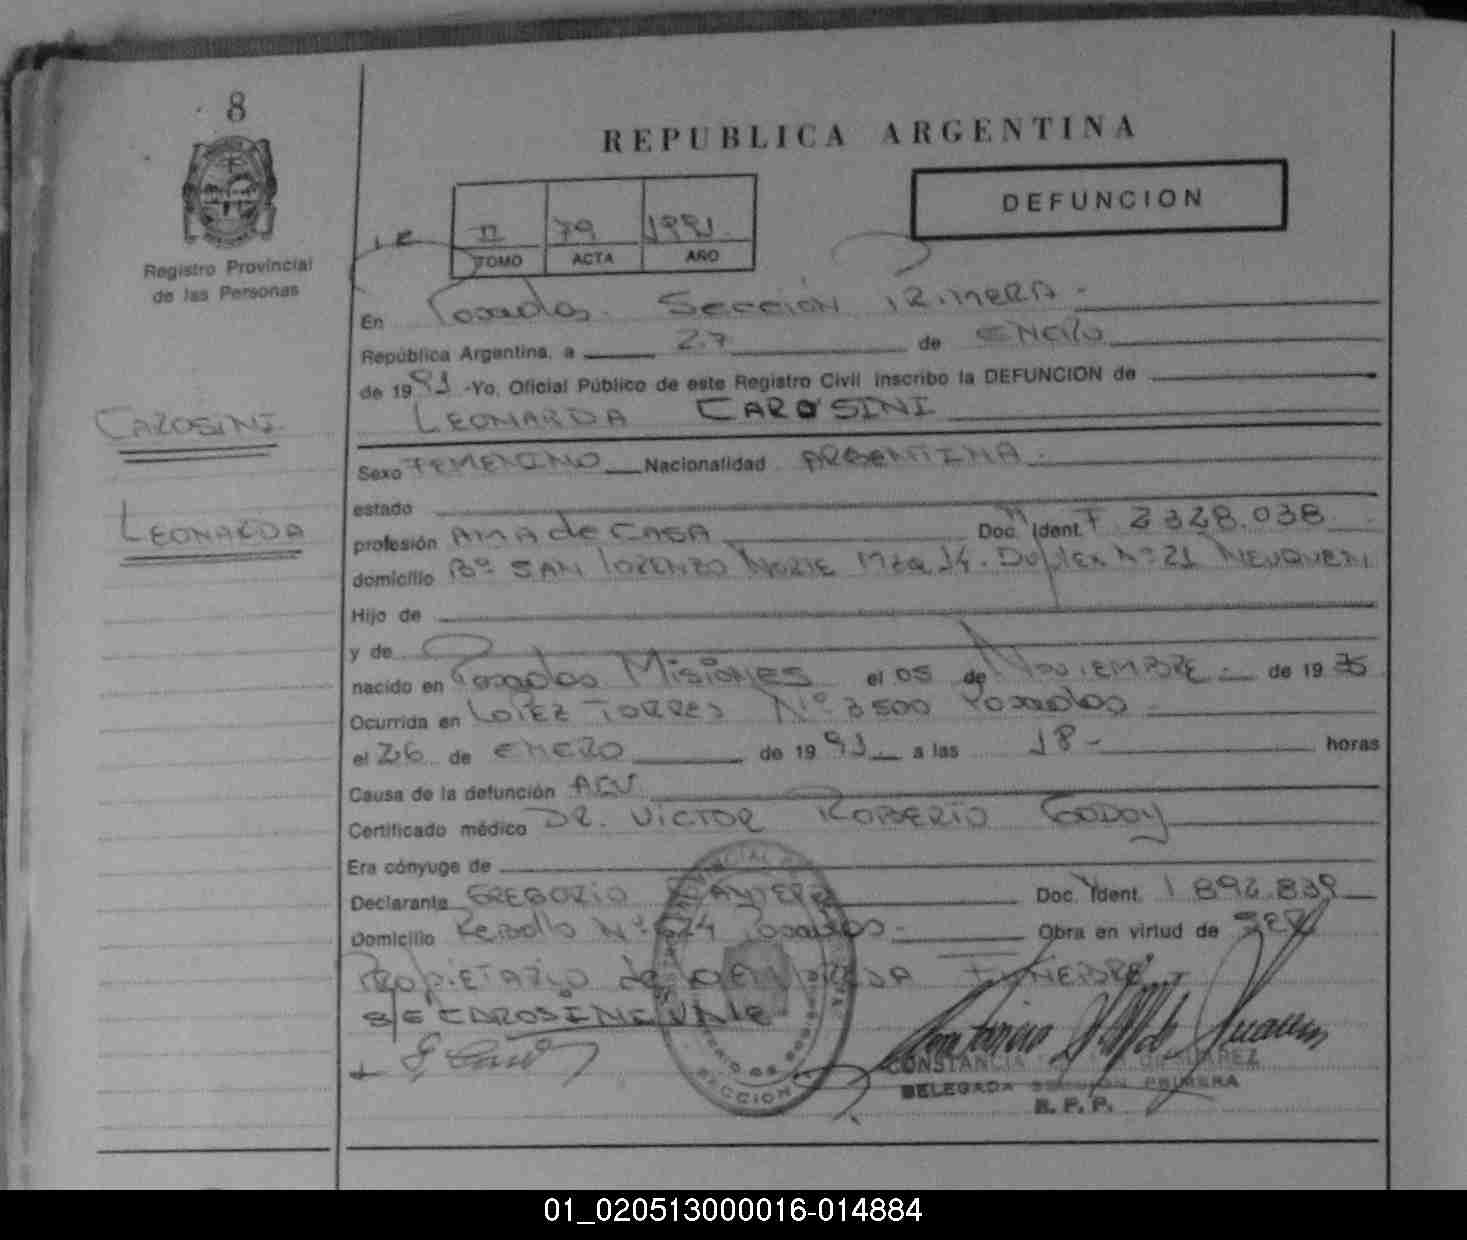 8
Registro Provincial
de las Personas
REPUBLICA ARGENTINA
DEFUNCION
II 79 1991.
TOMO ACTA AÑO
En Posadas. Sección PRIMERA -
República Argentina, a 27 de ENERO
de 1991 -Yo, Oficial Público de este Registro Civil inscribo la DEFUNCION de
LEONARDA CAROSINI
CAROSINI
LEONARDA
Sexo FEMENINO Nacionalidad ARGENTINA -
estado
profesión AMA de CASA Doc. Ident. F 2328.038
domicilio Bº SAN LORENZO NORTE Mza 14. Duplex Nº 21 NEUQUEN
Hijo de
y de
nacido en Posadas MISIONES el 05 de NOVIEMBRE - de 19
Ocurrida en LOPEZ TORRES Nº 3500 Posadas
el 26 de ENERO de 1991 a las 18 - horas
Causa de la defunción ACV.
Certificado médico DR. VICTOR ROBERTO GODOY
Era cónyuge de
Declarante GREGORIO Doc. Ident. 1892.839
Domicilio Rebollo Nº Posadas - Obra en virtud de SER
PROPIETARIO de FUNEBRE
S/E CAROSINI VALE
CONSTANCIA
DELEGADA SECCION PRIMERA
R. P. P.
SECCION
01_020513000016-014884